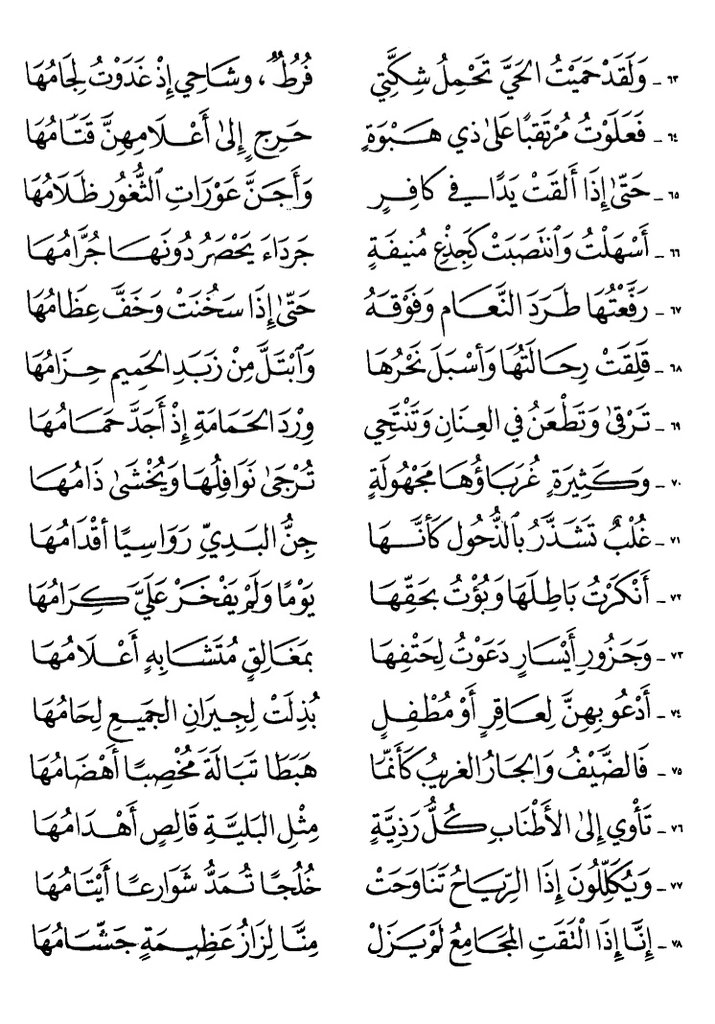 ٦٣ - وَلَقَدْ حَمَيْتُ الحَيَّ تَحْمِلُ شِكَّتِي فُرُطٌ، وِشَاحِي إِذْ غَدَوْتُ لِجَامُهَا
٦٤ - فَعَلَوْتُ مُرْتَقَبًا عَلىٰ ذِي هَبْوَةٍ حَرِجٍ إِلىٰ أَعْلَامِهِنَّ قَتَامُهَا
٦٥ - حَتَّىٰ إِذَا أَلقَتْ يَدًا في كافِرٍ وَأَجَنَّ عَوْرَاتِ ٱلثُّغُورِ ظَلَامُهَا
٦٦ - أَسْهَلْتُ وَٱنْتَصَبَتْ كَجِذْعِ مُنِيفَةٍ جَرْدَاءَ يَحْصَرُ دُونَهَا جُرَّامُهَا
٦٧ - رَفَّعْتُهَا طَرَدَ النَّعَامِ وَفَوْقَهُ حَتَّىٰ إِذَا سَخُنَتْ وَخَفَّ عِظَامُهَا
٦٨ - قَلِقَتْ رِحَالَتُهَا وَأَسْبَلَ نَحْرُهَا وَٱبْتَلَّ مِنْ زَبَدِ الحَمِيمِ حِزَامُهَا
٦٩ - تَرْقىٰ وَتَطْعَنُ في العِنَانِ وَتَنْتَحِي وِرْدَ الحَمَامَةِ إِذْ أَجَدَّ حَمَامُهَا
٧٠ - وَكَثِيرَةٍ غُرَبَاؤُهَا مَجْهُولَةٍ تُرْجَىٰ نَوَافِلُهَا وَيُخْشَىٰ ذَامُهَا
٧١ - غُلْبٌ تَشَذَّرُ بِٱلذُّحُولِ كَأَنَّهَا جِنُّ البَدِيِّ رَوَاسِيًا أَقْدَامُهَا
٧٢ - أَنْكَرْتُ بَاطِلَهَا وَبُؤْتُ بِحَقِّهَا يَوْمًا وَلَمْ يَفْخَرْ عَلَيَّ كِرَامُهَا
٧٣ - وَجَزُورِ أَيْسَارٍ دَعَوْتُ لِحَتْفِهَا بِمَغَالِقٍ مُتَشَابِهٍ أَعْلَامُهَا
٧٤ - أَدْعُو بِهِنَّ لِعَاقِرٍ أَوْ مُطْفِلٍ بُذِلَتْ لِجِيرَانِ الجَمِيعِ لِحَامُهَا
٧٥ - فَالضَّيْفُ وَالجَارُ الغَرِيبُ كَأَنَّمَا هَبَطَا تَبَالَةَ مُخْصِبًا أَهْضَامُهَا
٧٦ - تَأْوِي إِلىٰ الأَطْنَابِ كُلُّ رَذِيَّةٍ مِثْلِ البَلِيَّةِ قَالِصٍ أَهْدَامُهَا
٧٧ - وَيُكَلِّلُونَ إِذَا الرِّيَاحُ تَنَاوَحَتْ خُلُجًا تُمَدُّ شَوَارِعًا أَيْتَامُهَا
٧٨ - إِنَّا إِذَا الْتَقَتِ المَجَامِعُ لَمْ يَزَلْ مِنَّا لِزَازُ عَظِيمَةٍ جَشَّامُهَا